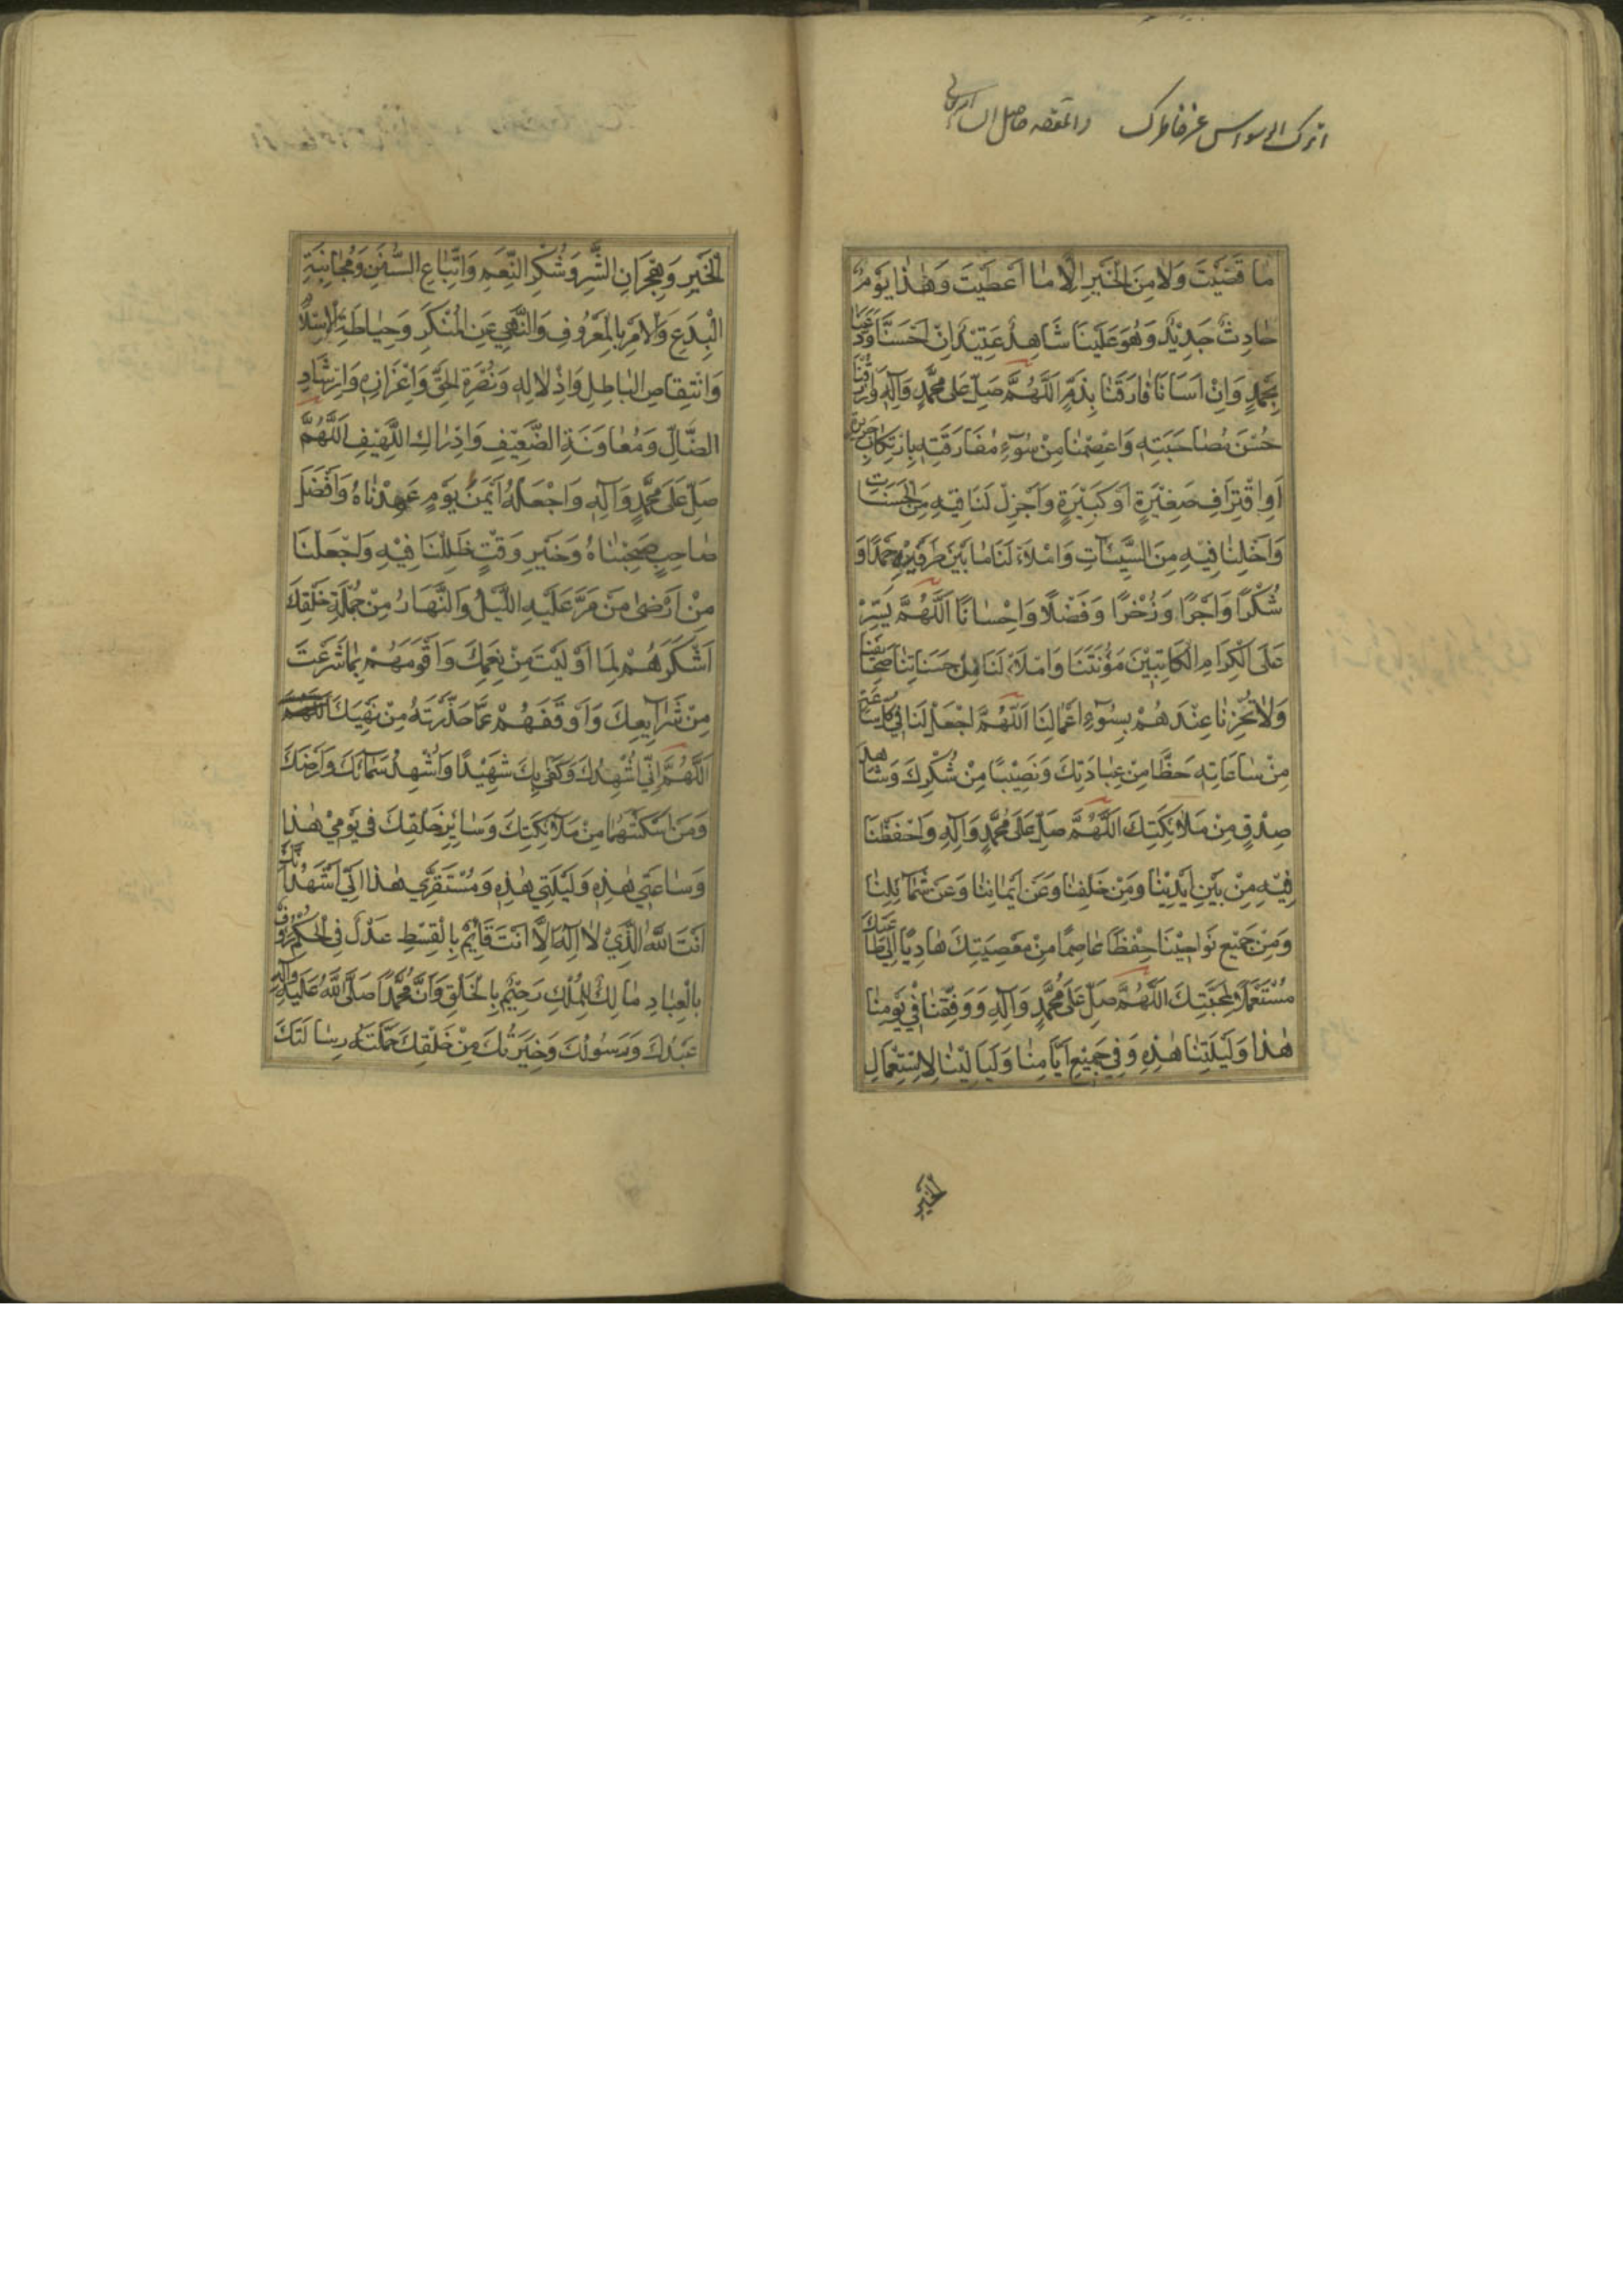 اترك الوسواس عن خاطرك
مَا قَضَيْتَ وَلَا مِنَ الْخَيْرِ اِلَّا مَا اَعْطَيْتَ وَهٰذَا يَوْمٌ
حَادِثٌ جَدِيْدٌ وَهُوَ عَلَيْنَا شَاهِدٌ عَتِيْدٌ اِنْ اَحْسَنَّا وَدَّعَنَا
بِحَمْدٍ وَاِنْ اَسَأْنَا فَارَقَنَا بِذَمٍّ اَللّٰهُمَّ صَلِّ عَلٰى مُحَمَّدٍ وَآلِهِ وَارْزُقْنَا
حُسْنَ مُصَاحَبَتِهِ وَاعْصِمْنَا مِنْ سُوْءِ مُفَارَقَتِهِ بِارْتِكَابِ جَرِيرَةٍ
اَوِ اقْتِرَافِ صَغِيْرَةٍ اَوْ كَبِيْرَةٍ وَاَجْزِلْ لَنَا فِيْهِ مِنَ الْحَسَنَاتِ
وَاَخْلِنَا فِيْهِ مِنَ السَّيِّئَاتِ وَامْلَأْ لَنَا مَا بَيْنَ طَرَفَيْهِ حَمْدًا وَ
شُكْرًا وَاَجْرًا وَذُخْرًا وَفَضْلًا وَاِحْسَانًا اَللّٰهُمَّ يَسِّرْ
عَلَى الْكِرَامِ الْكَاتِبِيْنَ مَؤُنَتَنَا وَامْلَأْ لَنَا مِنْ حَسَنَاتِنَا صَحَائِفَنَا
وَلَا تُخْزِنَا عِنْدَهُمْ بِسُوْءِ اَعْمَالِنَا اَللّٰهُمَّ اجْعَلْ لَنَا فِي كُلِّ سَاعَةٍ
مِنْ سَاعَاتِهِ حَظًّا مِنْ عِبَادَتِكَ وَنَصِيْبًا مِنْ شُكْرِكَ وَشَاهِدَ
صِدْقٍ مِنْ مَلَائِكَتِكَ اَللّٰهُمَّ صَلِّ عَلٰى مُحَمَّدٍ وَآلِهِ وَاحْفَظْنَا
فِيْهِ مِنْ بَيْنِ اَيْدِيْنَا وَمِنْ خَلْفِنَا وَعَنْ اَيْمَانِنَا وَعَنْ شَمَائِلِنَا
وَمِنْ جَمِيْعِ نَوَاحِيْنَا حِفْظًا عَاصِمًا مِنْ مَعْصِيَتِكَ هَادِيًا اِلٰى طَاعَتِكَ
مُسْتَعْمَلًا لِمَحَبَّتِكَ اَللّٰهُمَّ صَلِّ عَلٰى مُحَمَّدٍ وَآلِهِ وَوَفِّقْنَا فِيْ يَوْمِنَا
هٰذَا وَلَيْلَتِنَا هٰذِهِ وَفِي جَمِيْعِ اَيَّامِنَا وَلَيَالِيْنَا لِاِسْتِعْمَالِ
الْخَيْرِ
الْخَيْرِ وَهِجْرَانِ الشَّرِّ وَشُكْرِ النِّعَمِ وَاتِّبَاعِ السُّنَنِ وَمُجَانَبَةِ
الْبِدَعِ وَالْاَمْرِ بِالْمَعْرُوفِ وَالنَّهْيِ عَنِ الْمُنْكَرِ وَحِيَاطَةِ الْاِسْلَامِ
وَانْتِقَاصِ الْبَاطِلِ وَاِذْلَالِهِ وَنُصْرَةِ الْحَقِّ وَاِعْزَازِهِ وَاِرْشَادِ
الضَّالِّ وَمُعَاوَنَةِ الضَّعِيْفِ وَاِدْرَاكِ اللَّهِيْفِ اَللّٰهُمَّ
صَلِّ عَلٰى مُحَمَّدٍ وَآلِهِ وَاجْعَلْهُ اَيْمَنَ يَوْمٍ عَهِدْنَاهُ وَاَفْضَلَ
صَاحِبٍ صَحِبْنَاهُ وَخَيْرَ وَقْتٍ ظَلِلْنَا فِيْهِ وَاجْعَلْنَا
مِنْ اَرْضٰى مَنْ مَرَّ عَلَيْهِ اللَّيْلُ وَالنَّهَارُ مِنْ جُمْلَةِ خَلْقِكَ
اَشْكَرَهُمْ لِمَا اَوْلَيْتَ مِنْ نِعَمِكَ وَاَقْوَمَهُمْ بِمَا شَرَعْتَ
مِنْ شَرَايِعِكَ وَاَوْقَفَهُمْ عَمَّا حَذَّرْتَهُ مِنْ نَهْيِكَ اَللّٰهُمَّ
اَللّٰهُمَّ اِنِّي اُشْهِدُكَ وَكَفٰى بِكَ شَهِيْدًا وَاُشْهِدُ سَمَائَكَ وَاَرْضَكَ
وَمَنْ اَسْكَنْتَهُمَا مِنْ مَلَائِكَتِكَ وَسَايِرِ خَلْقِكَ فِي يَوْمِيْ هٰذَا
وَسَاعَتِي هٰذِهِ وَلَيْلَتِي هٰذِهِ وَمُسْتَقَرِّي هٰذَا اَنِّي اَشْهَدُ اَنَّكَ
اَنْتَ اللهُ الَّذِيْ لَا اِلٰهَ اِلَّا اَنْتَ قَائِمٌ بِالْقِسْطِ عَدْلٌ فِي الْحُكْمِ رَؤُفٌ
بِالْعِبَادِ مَالِكُ الْمُلْكِ رَحِيْمٌ بِالْخَلْقِ وَاَنَّ مُحَمَّدًا صَلَّى اللهُ عَلَيْهِ وَآلِهِ
عَبْدُكَ وَرَسُوْلُكَ وَخِيَرَتُكَ مِنْ خَلْقِكَ حَمَّلْتَهُ رِسَالَتَكَ